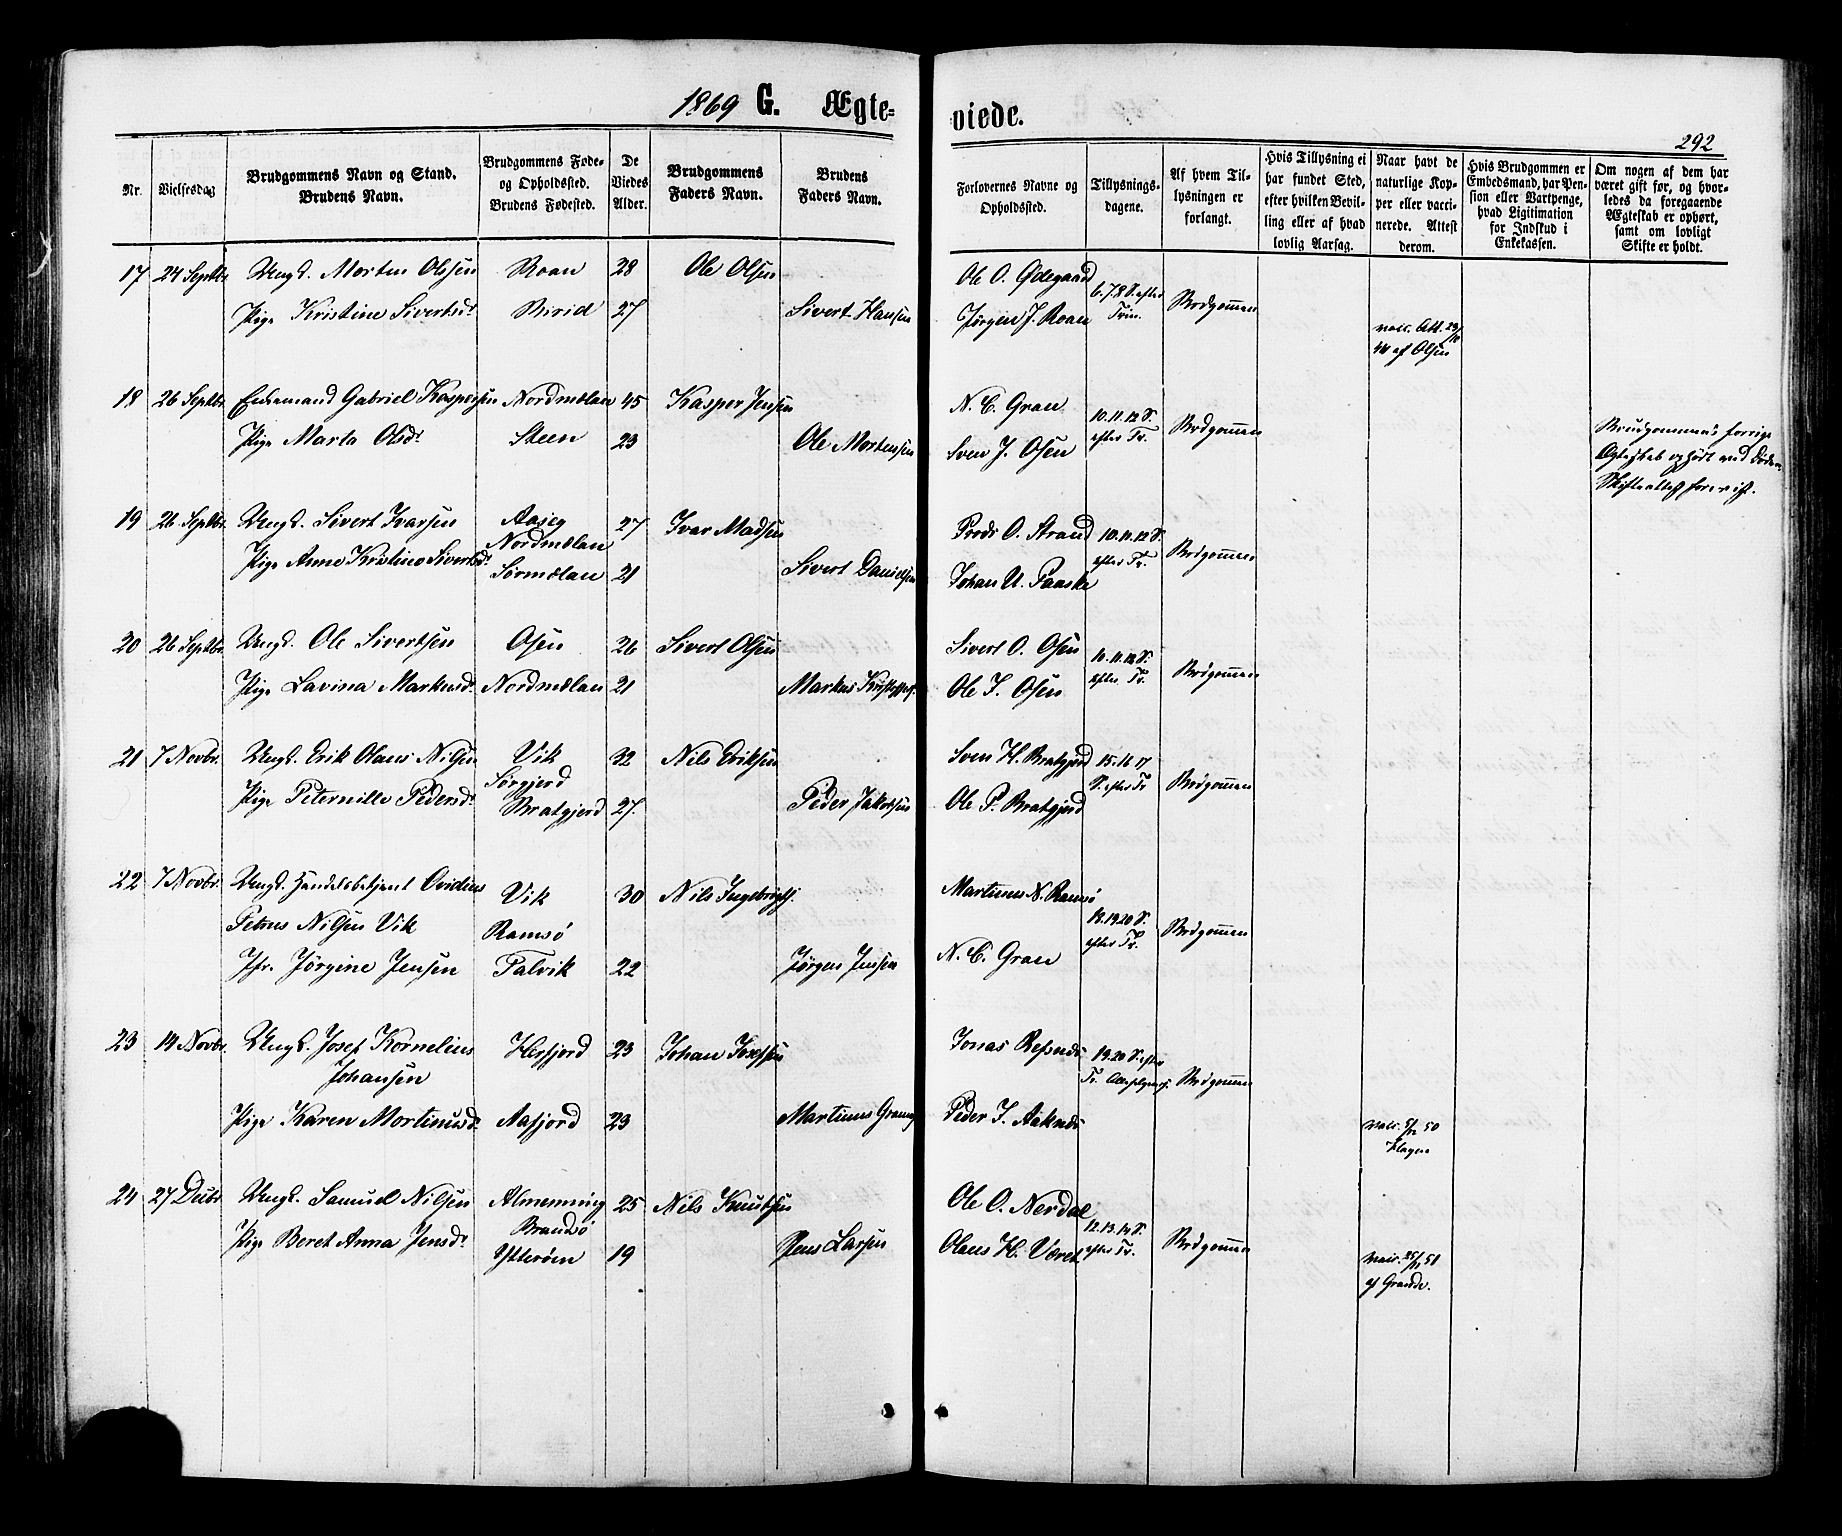 1869 G. Ægte=
viede.
292
Nr.
Vielsesdag
Brudgommens Navn og Stand.
Brudens Navn.
Brudgommens Føde=
og Opholdssted.
Brudens Fødested.
De
Viedes
Alder.
Brudgommens
Faders Navn.
Brudens
Faders Navn.
Forlovernes Navne og
Opholdssted.
Tillysnings=
dagene.
Af hvem Til=
lysningen er
forlangt.
Hvis Tillysning ei
har fundet Sted,
efter hvilken Bevil=
ling eller af hvad
lovlig Aarsag.
Naar havt de
naturlige Kop=
per eller vacci=
nerede. Attest
derom.
Hvis Brudgommen er
Embedsmand, har Pen=
sion eller Vartpenge,
hvad Ligitimation
for Indskud i
Enkekassen.
Om nogen af dem har
været gift før, og hvor=
ledes da foregaaende
Ægteskab er ophørt,
samt om lovligt
Skifte er holdt.
17 24 Septbr. Ungk. Morten Olssen Roan 28 Ole Olsen Ole O. Ødegaard 6.7.8 S. efter
Pige Kristine Sivertsd. Birid 27 Sivert Hansen Jørgen J. Roan Trin. Brdgommen
vacc. Att. 29/
44 af Olsen
18 26 Septbr. Enkemand Gabriel Kaspersen Nordmælan 45 Kasper Jensen N. C. Gran 10.11.12 S.
Pige Marta Olsdt. Steen 23 Ole Mortensen Sven J. Osen efter Tr. Brdgommen
Brudgommens forrige
Ægteskab ophørt ved Døden
Skifteattest forevist.
19 26 Septbr. Ungk. Sivert Ivarsen Aaseg 27 Ivar Madsen O. Strand 10.11.12 S.
Nordmælan
Pige Anne Kristine Sivertsdt. Sørmælan 21 Sivert Danielsen Johan U. Paaske efter Tr. Brdgommen
20 26 Septbr. Ungk. Ole Sivertsen Osen 26 Sivert Olsen Sivert O. Osen 10.11.12 S.
Pige Lavina Markusdt. Nordmælan 21 Markus Ole J. Osen efter Tr. Brdgommen
21 7 Novbr. Ungk. Erik Olaus Nilsen Vik 32 Nils Eriksen Sven H. Bratgjerd 15.16 17
Sørgjerd
Pige Peternille Pedersdt. Bratgjerd 27. Peder Jakobsen Ole P. Bratgjerd S. efter Tr. Brdgommen
22 7 Novbr. Ungk. Handelsbetjent Ovidius Vik 30 Nils Ingebrigts. Martinus N. Ramsø
Petrus Nilsen Vik Ramsø 18.19.20 S. Brdgommen
Jfr. Jørgine Jensen Talvik 22 Jørgen Jensen N. C. Gran efter Tr.
23 14 Novbr. Ungk. Josef Kornelius Hofsfjord 23 Johan Josefsen Jonas Refsnes 19.20 S. efter
Johansen Tr. Brdgommen
Pige Karen Martinusdt. Aafjord 23 Martinus Peder J.
vacc. 5/12 50
Hagen
24 27 Decbr. Ungk. Samuel Nilsen Almenning 25 Nils Knutsen Ole O. Nerdal
Brandsø 12.13.14 S. Brdgommen
Pige Beret Anna Jensdt. Ytterøen 19 Jens Larsen Olaus H. Været efter Tr.
vacc. 25/11 51
af Grande.